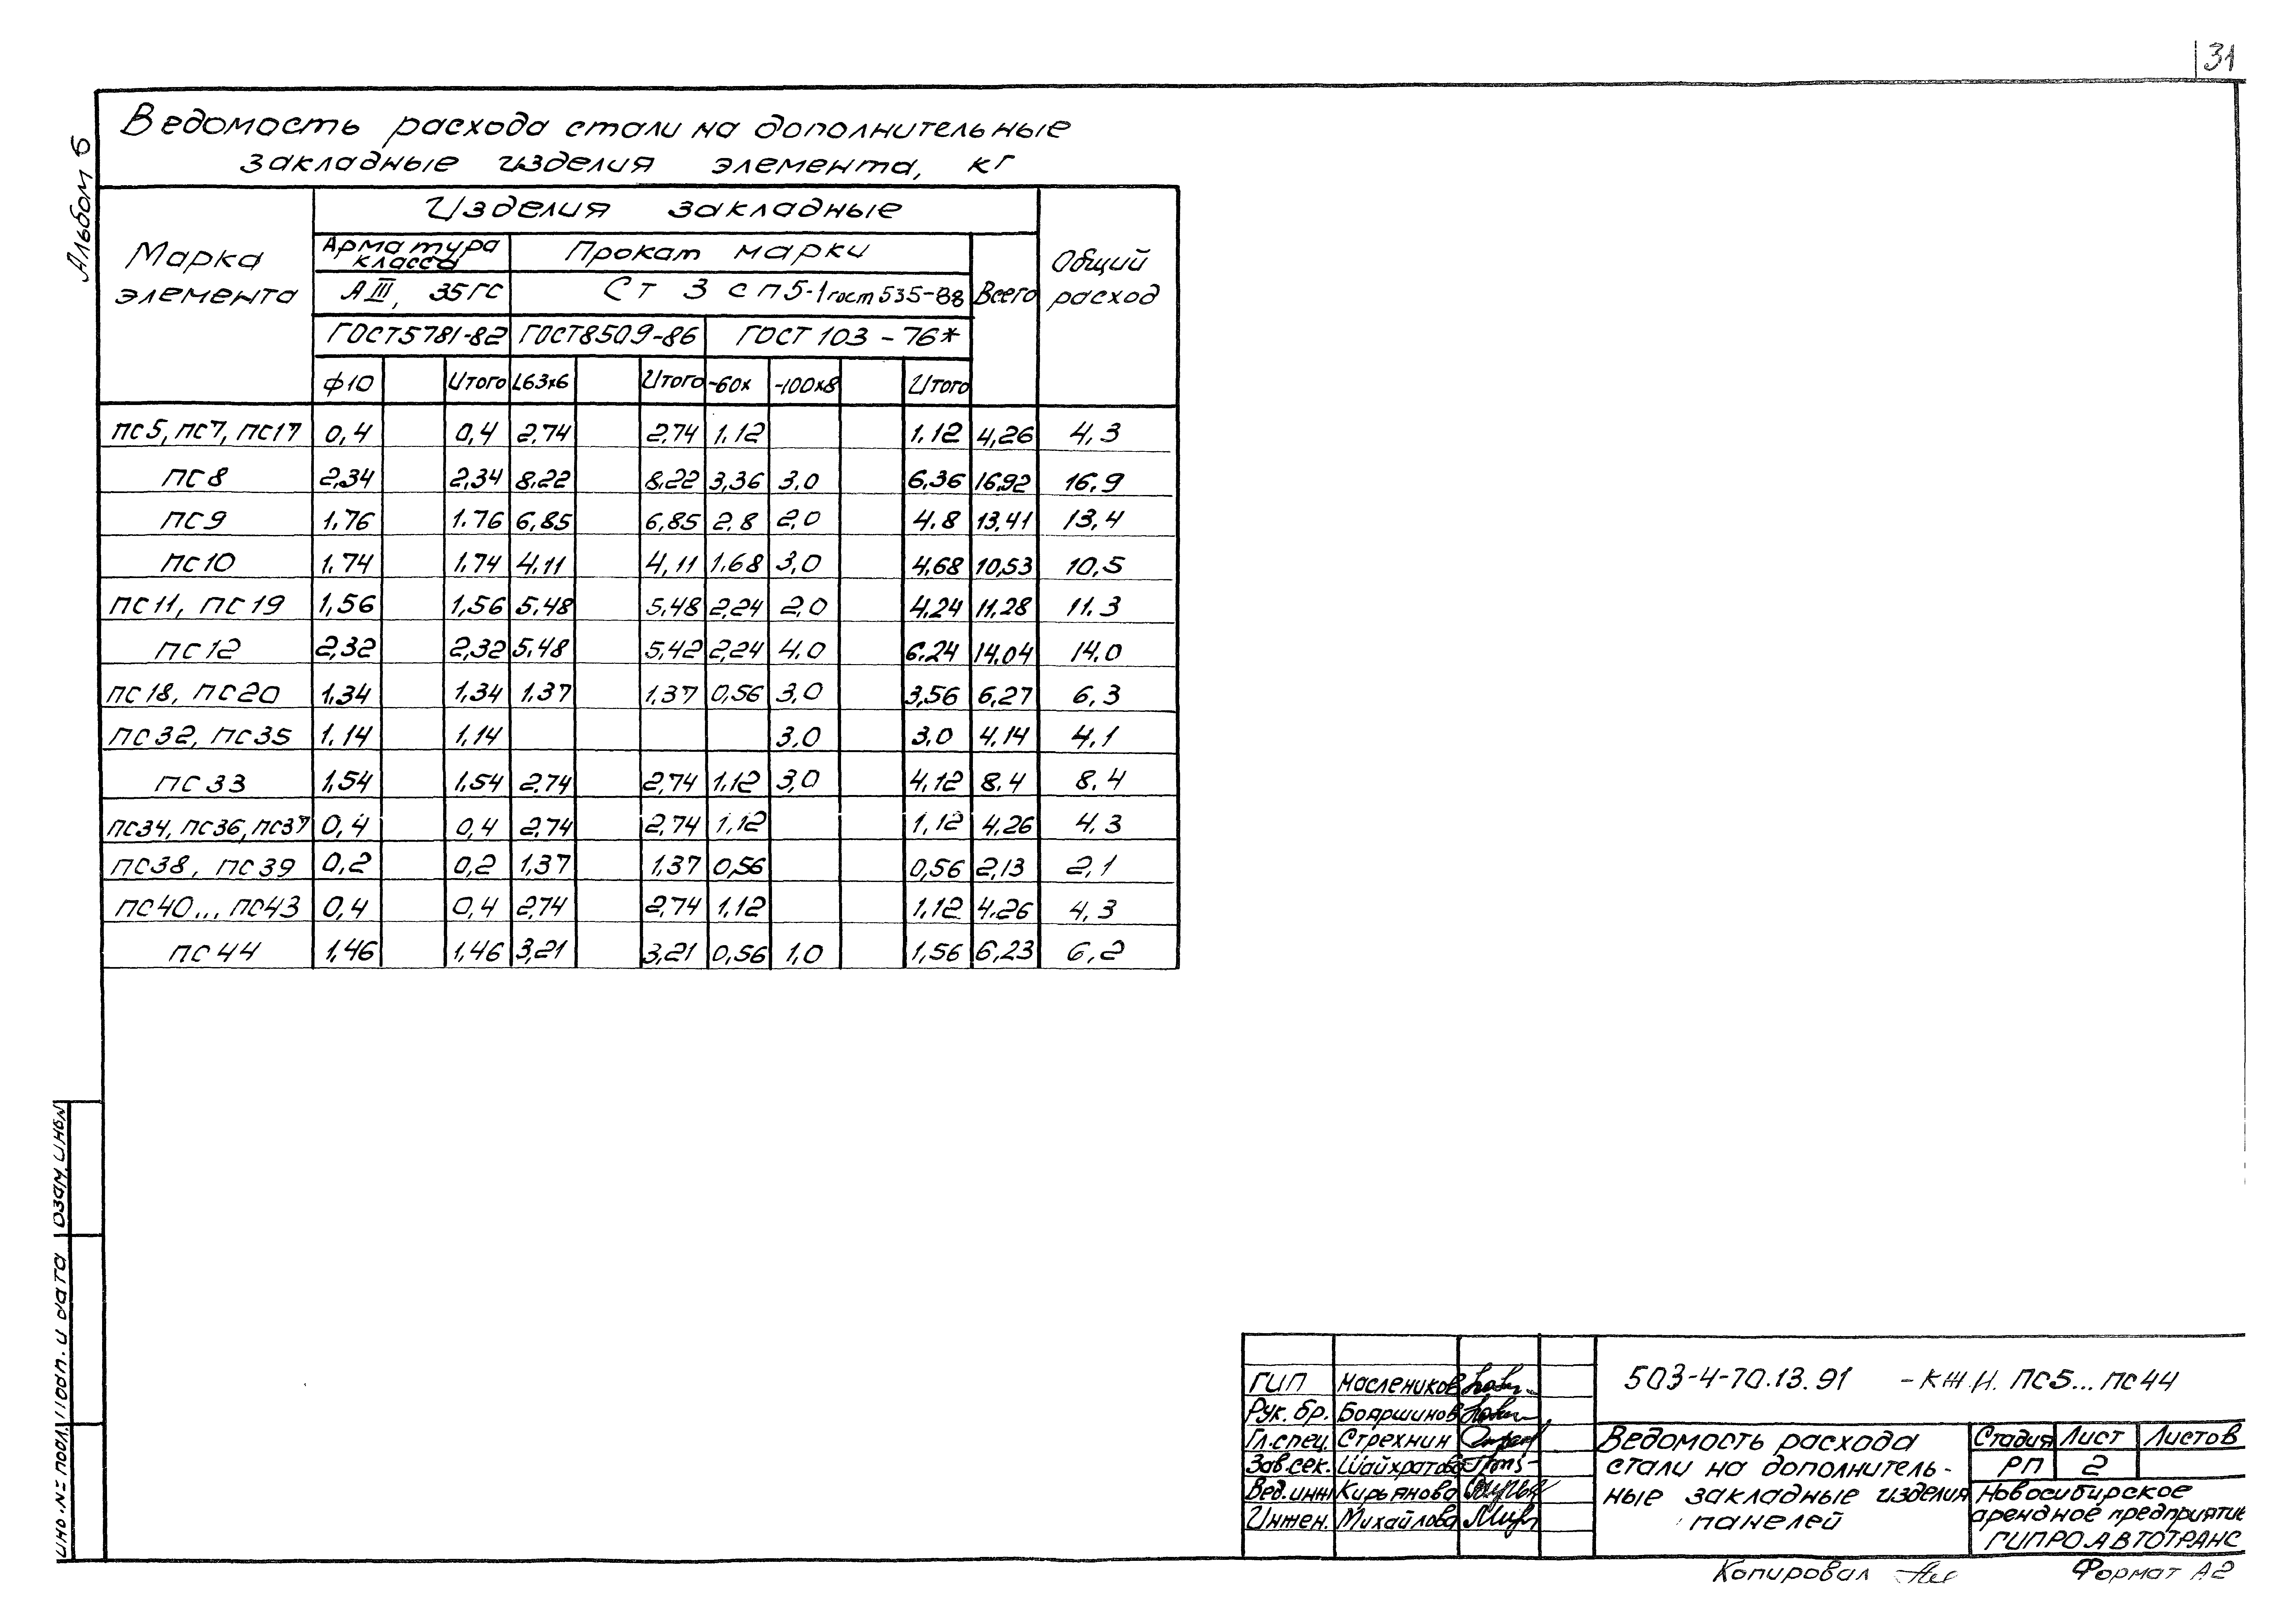 31
Альбом 6
Ведомость расхода стали на дополнительные
закладные изделия элемента, кг
Марка элемента
Изделия закладные
Общий расход
Арматура класса
Прокат марки
Всего
АIII, 35ГС
Ст 3 сп5-1 гост 535-88
ГОСТ5781-82 ГОСТ8509-86 ГОСТ 103-76*
ф10 Итого L63х6 Итого -60х -100х8 Итого
пс5, пс7, пс17 0,4 0,4 2,74 2,74 1,12 1,12 4,26 4,3
пс8 2,34 2,34 8,22 8,22 3,36 3.0 6,36 16,92 16,9
пс9 1,76 1.76 6,85 6,85 2,8 2,0 4.8 13,41 13,4
пс10 1.74 1,74 4,11 4,11 1.68 3,0 4,68 10,53 10,5
пс11, пс19 1,56 1,56 5.48 5,48 2,24 2,0 4,24 11,28 11.3
пс12 2,32 2,32 5,48 5,42 2,24 4.0 6.24 14,04 14,0
пс18, пс20 1,34 1,34 1.37 1,37 0,56 3,0 3,56 6,27 6,3
пс32, пс35 1,14 1,14 3.0 3,0 4,14 4,1
пс33 1,54 1,54 2,74 2,74 1,12 3,0 4,12 8.4 8.4
пс34, пс36, пс37 0,4 0,4 2,74 2,74 1,12 1,12 4,26 4,3
пс38, пс39 0,2 0,2 1,37 1,37 0,56 0,56 2,13 2,1
пс40... пс43 0,4 0,4 2,74 2,74 1,12 1,12 4.26 4,3
пс44 1,46 1,46 3,21 3,21 0,56 1,0 1,56 6,23 6,2
Взам. инв.N
Подп. и дата
Инв. N= подл.
ГИП Маслеников
Рук. бр. Бояршинов
Гл.спец. Стрехнин
Зав.сек. Шайхратова
Вед.инж Кирьянова
Инжен. Михайлова
503-4-70.13.91 -КЖ.И. ПС5...ПС44
Ведомость расхода
стали на дополнитель-
ные закладные изделия
панелей
Стадия Лист Листов
РП 2
Новосибирское
арендное предприятие
ГИПРОАВТОТРАНС
Копировал
Формат А2